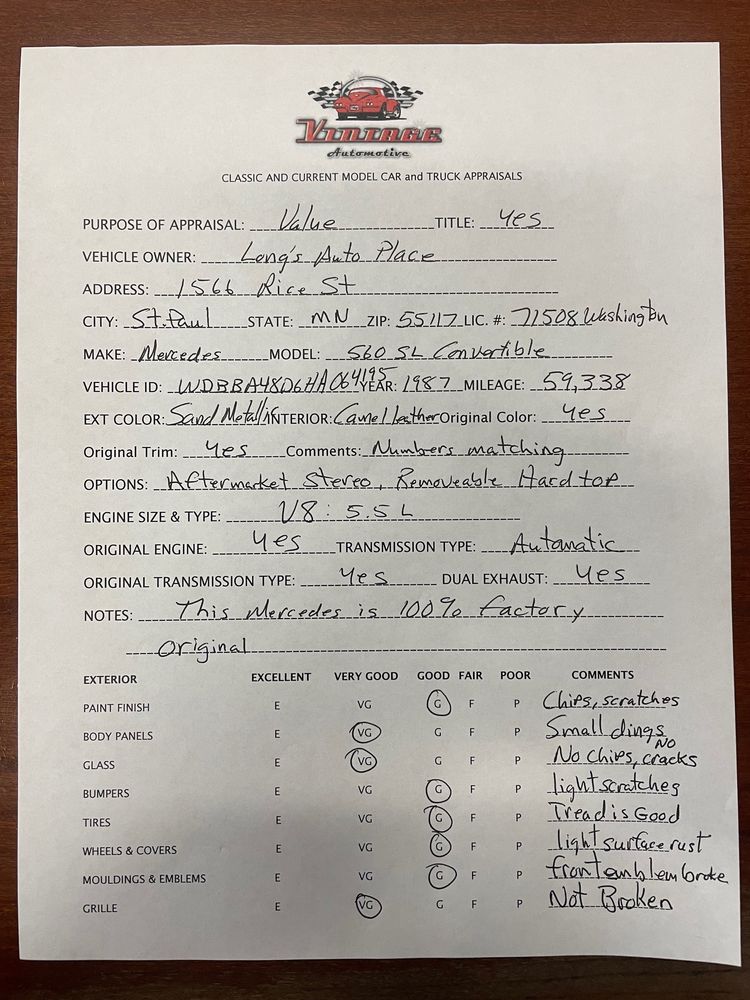 VINTAGE
Automotive
CLASSIC AND CURRENT MODEL CAR and TRUCK APPRAISALS
PURPOSE OF APPRAISAL: Value TITLE: yes
VEHICLE OWNER: Long's Auto Place
ADDRESS: 1566 Rice St
CITY: St. Paul STATE: MN ZIP: 55117 LIC. #: 71508 Washington
MAKE: Mercedes MODEL: 560 SL Convertible
VEHICLE ID: WDBBA48D6HA064195 YEAR: 1987 MILEAGE: 59,338
EXT COLOR: Sand Metallic INTERIOR: Camel leather Original Color: yes
Original Trim: yes Comments: Numbers matching
OPTIONS: Aftermarket Stereo, Removeable Hard top
ENGINE SIZE & TYPE: V8: 5.5 L
ORIGINAL ENGINE: yes TRANSMISSION TYPE: Automatic
ORIGINAL TRANSMISSION TYPE: yes DUAL EXHAUST: yes
NOTES: This Mercedes is 100% factory
original
EXTERIOR EXCELLENT VERY GOOD GOOD FAIR POOR COMMENTS
PAINT FINISH E VG G F P Chips, scratches
BODY PANELS E VG G F P Small dings
GLASS E VG G F P No chips, NO cracks
BUMPERS E VG G F P light scratches
TIRES E VG G F P Tread is Good
WHEELS & COVERS E VG G F P light surface rust
MOULDINGS & EMBLEMS E VG G F P front emblem broke
GRILLE E VG G F P Not Broken